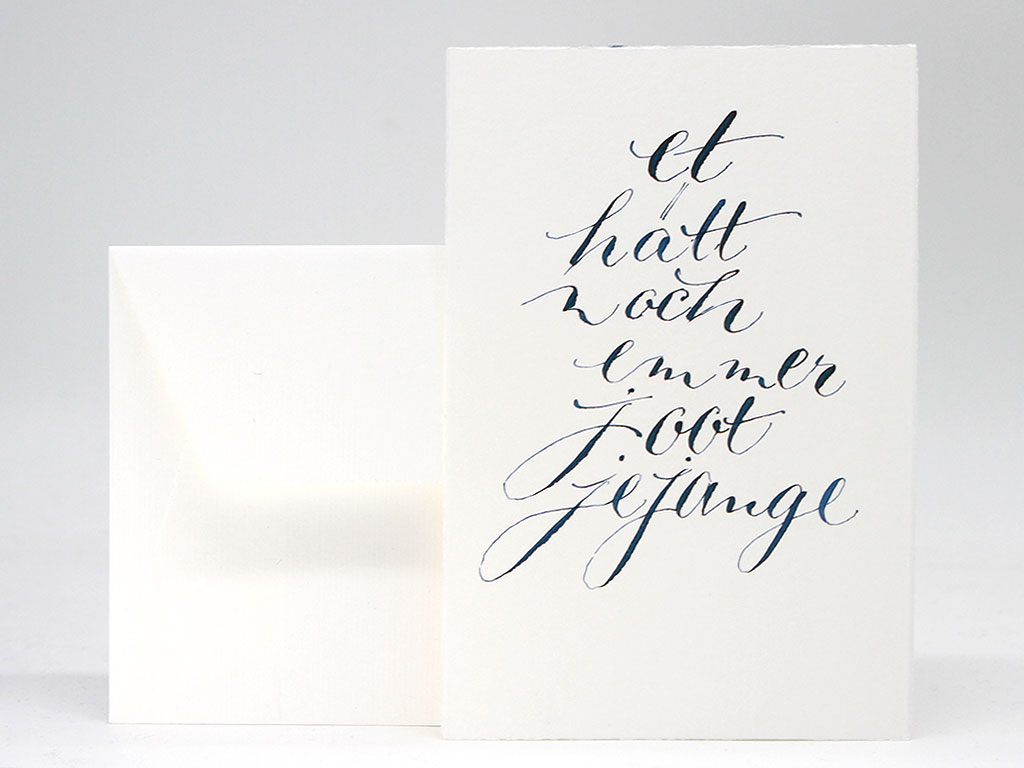 et
hätt
noch
emmer
joot
jejange